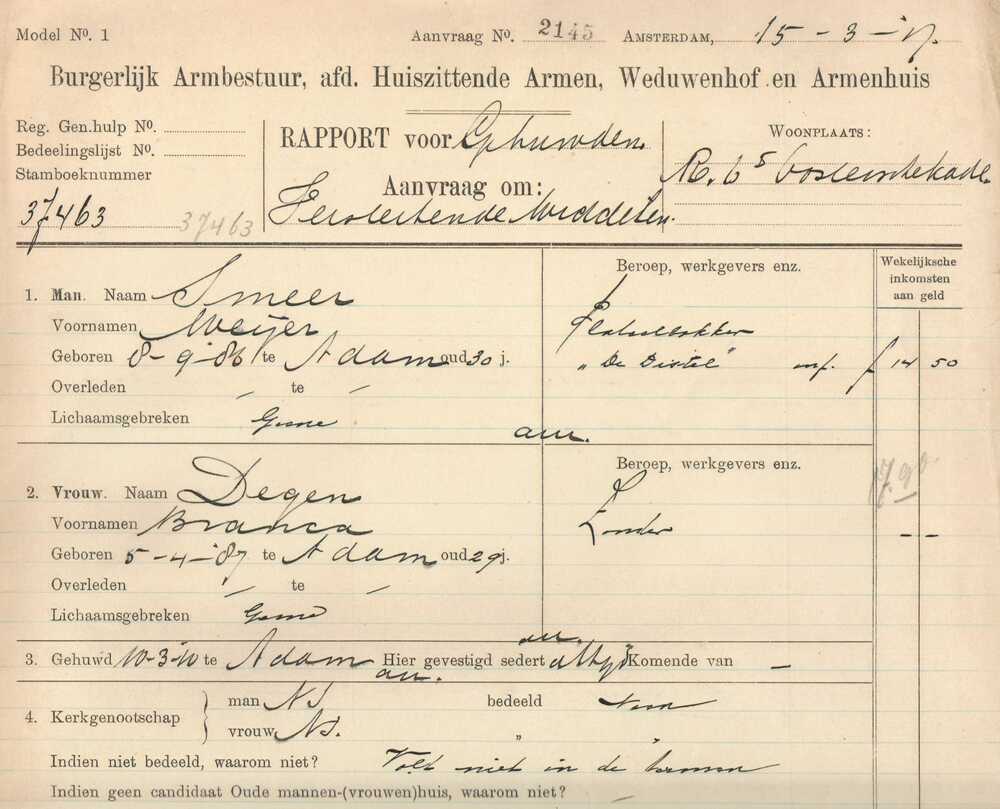 Model No. 1
Aanvraag No. 2145 Amsterdam, 15-3-17.
Burgerlijk Armbestuur, afd. Huiszittende Armen, Weduwenhof en Armenhuis
Reg. Gen.hulp No.
Bedeelingslijst No.
Stamboeknummer
37463 37463
RAPPORT voor Gehuwden.
Aanvraag om:
Versterkende Middelen.
Woonplaats:
Oosteindekade
Wekelijksche inkomsten aan geld
Beroep, werkgevers enz.
1. Man. Naam Smeer
Voornamen Meijer
Geboren 8-9-86 te A'dam oud 30 j.
Plateelbakker
"De Distel" f 14 50
Overleden - te -
Lichaamsgebreken Geene
Beroep, werkgevers enz.
17.90
2. Vrouw. Naam Degen
Voornamen Branca
Zonder - -
Geboren 5-4-87 te A'dam oud 29 j.
Overleden - te -
Lichaamsgebreken Geene
3. Gehuwd 10-3-10 te A'dam Hier gevestigd sedert altijd Komende van -
4. Kerkgenootschap
man N.I. bedeeld Neen
vrouw N.I. " "
Indien niet bedeeld, waarom niet? Valt niet in de termen
Indien geen candidaat Oude mannen-(vrouwen)huis, waarom niet?